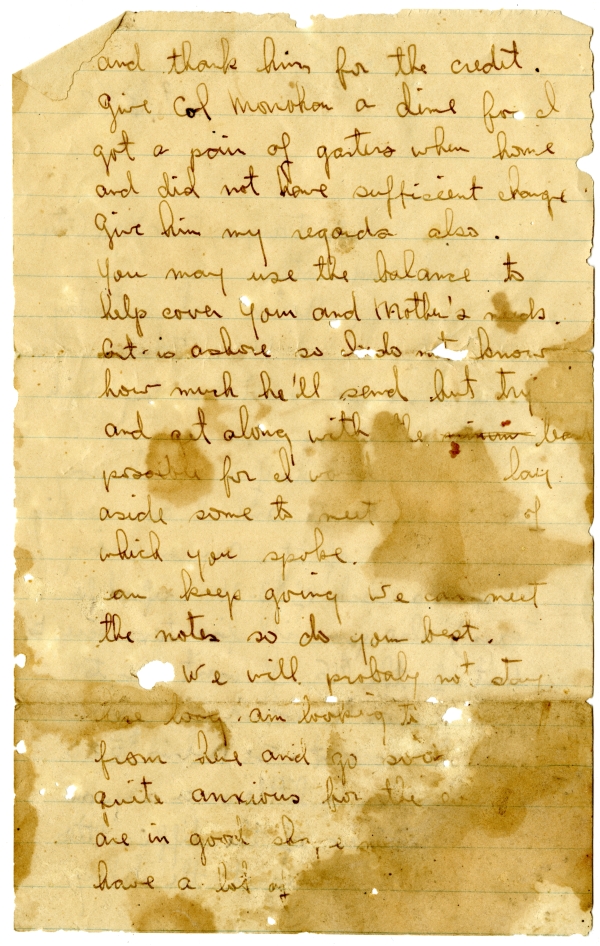 and thank him for the credit.
Give Col Monohan a dime for I
got a pair of garters when home
and did not have sufficient change
Give him my regards also.
You may use the balance to
help cover your and Mother's needs.
Art is ashore so I do not know
how much he'll send but try
and get along with the
possible for I lay
aside some to meet of
which you spoke.
can keep going we can meet
the notes so do your best.
We will probaly not stay
here long. am looking to
from here and go
quite anxious for the
are in good shape
have a lot of